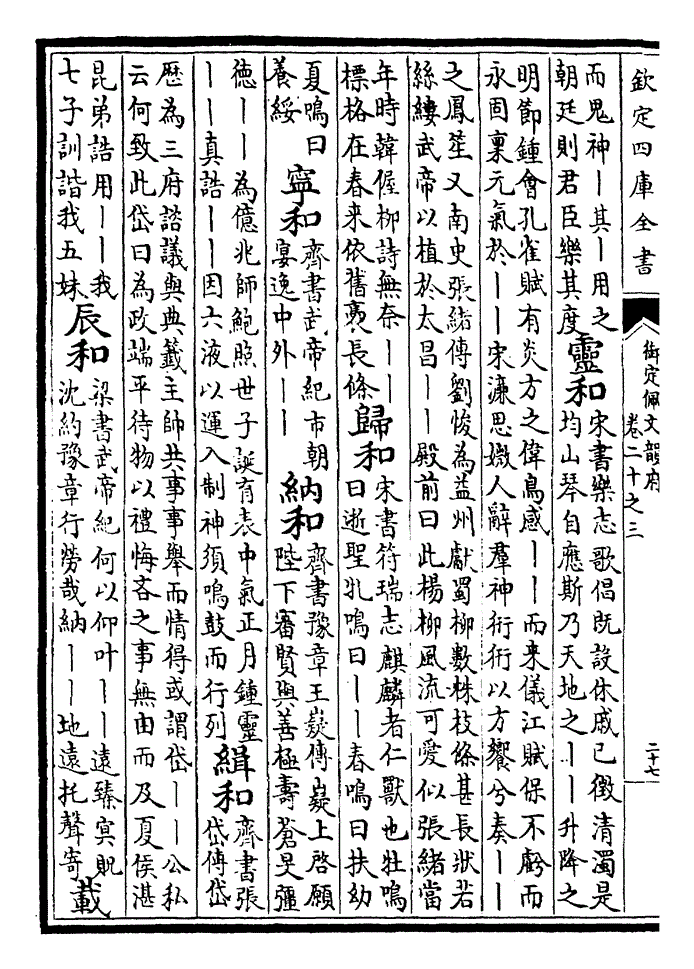 欽定四庫全書
御定佩文韻府
卷二十之三
二十七
而鬼神丨其丨用之
朝廷則君臣樂其度
靈和
宋書樂志歌倡既設休戚已徵清濁是
均山琴自應斯乃天地之丨丨升降之
明節鍾會孔雀賦有炎方之偉鳥感丨丨而來儀江賦保不虧而
永固稟元氣於丨丨宋濂思媺人辭羣神衎衎以方饗兮奏丨丨
之鳳笙又南史張緒傳劉悛為益州獻蜀柳數株枝條甚長狀若
絲縷武帝以植於太昌丨丨殿前曰此楊柳風流可愛似張緒當
年時韓偓柳詩無奈丨丨
標格在春来依舊褭長條
歸和
宋書符瑞志麒麟者仁獸也牡鳴
曰逝聖牝鳴曰丨丨春鳴曰扶幼
夏鳴曰
養綏
寧和
齊書武帝紀市朝
宴逸中外丨丨
納和
齊書豫章王嶷傳嶷上啓願
陛下審賢與善極壽蒼旻彊
德丨丨為億兆師鮑照世子誕育表中氣正月鍾靈
丨丨真誥丨丨因六液以運入制神須鳴鼓而行列
緝和
齊書張
岱傳岱
歷為三府諮議與典籤主帥共事事舉而情得或謂岱丨丨公私
云何致此岱曰為政端平待物以禮悔吝之事無由而及夏侯湛
昆弟誥用丨丨我
七子訓諧我五妹
辰和
梁書武帝紀何以仰叶丨丨遠臻冥貺
沈約豫章行勞哉納丨丨地遠托聲寄
載